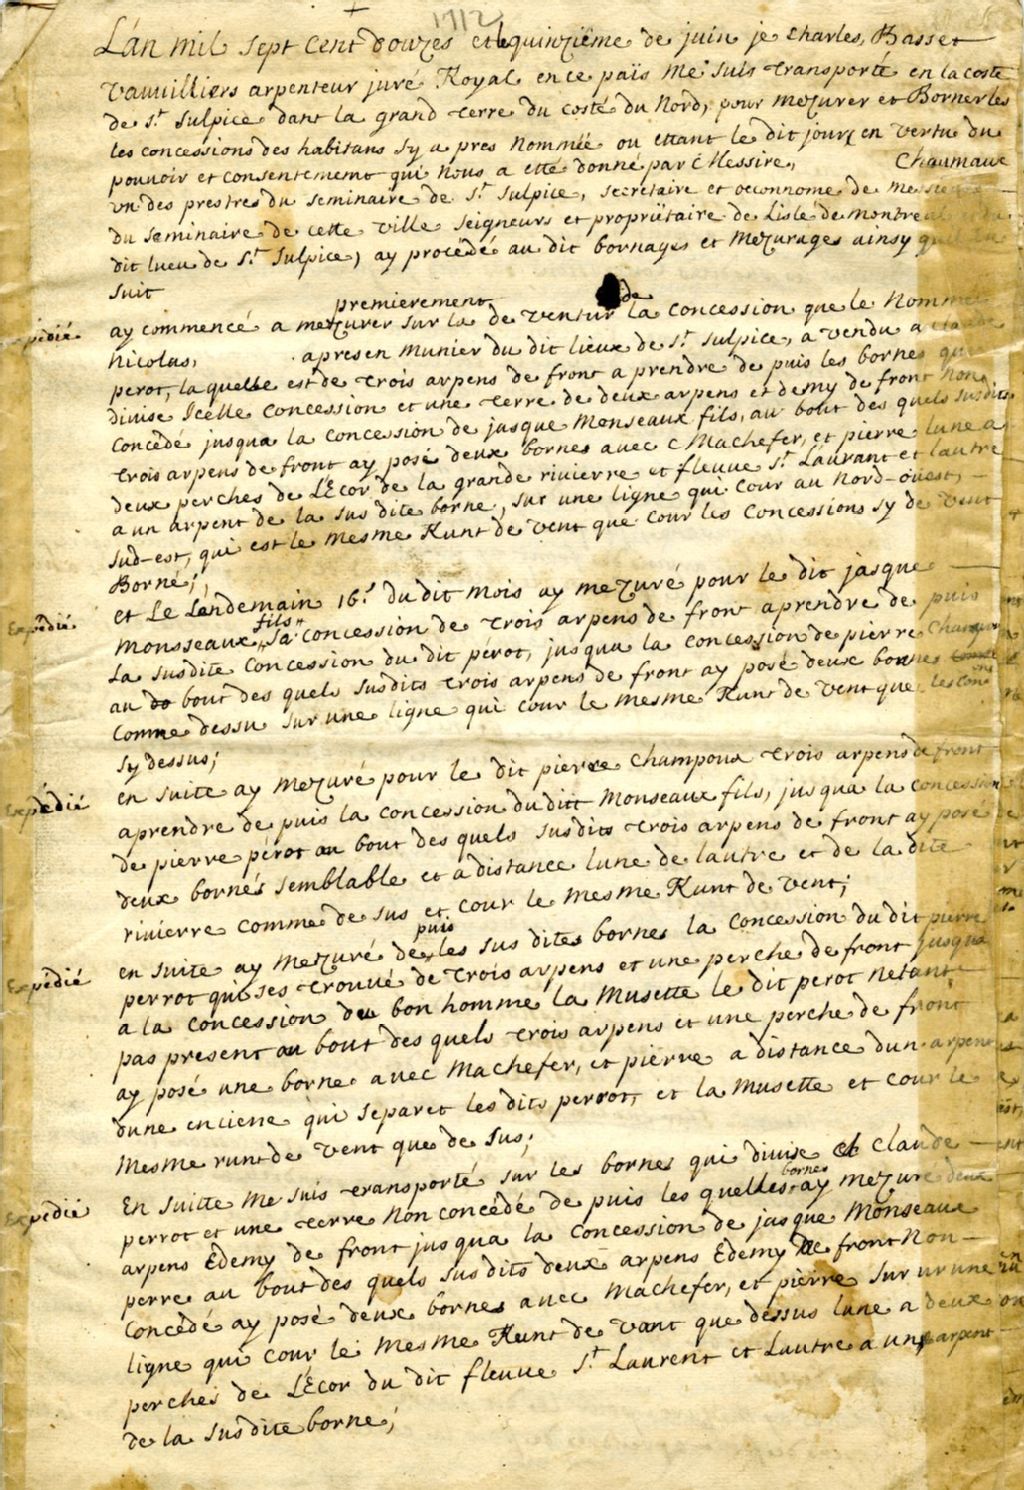 1712
L'an mil sept cent douzes et le quinziéme de juin je Charles, Basset
Vauuilliers arpenteur juré Royal en ce païs me suis transporté en la coste
de St. Sulpice dans la grand terre du costé du Nord, pour mezurer et Borner les
les concessions des habitans sy apres Nommée ou ettant le dit jour, en vertu du
pouuoir et consentement qui Nous a etté donné par Messire, Chaumaux
vn des prestres du seminaire de St. Sulpice, secretaire et oeconnome de
du seminaire de cette ville seigneurs et propriïtaire de Lisle de montreal
dit lieu de St. Sulpice, ay procédé au dit bornages et mezurages ainsy
suit
premierement de
Expédié
ay commencé a mezurer sur la de ventur la concession que le Nommé
Nicolas, apresen munier du dit lieux de St. Sulpice, a vendu a claude
perot, la quelle est de trois arpens de front a prendre de puis les bornes qui
diuise Icelle concession et une terre de deux arpens et demy de front Non
Concédé jusqua la concession de jasque Monseaux fils, au bout des quels susdits
trois arpens de front ay posé deux bornes avec Machefer, et pierre lune a
deux perches de LEcor de la grande rivierre et fleuue St. Laurant et lautre
a un arpent de la sus dite borne, sur une ligne qui cour au Nord-oüest,
sud-est, qui est le mesme Runt de vent que cour les Concessions sy de vent
Borné;
Expédié
et Le Lendemain 16.e du dit mois ay mezuré pour le dit jasque
fils
monsseaux, sa concession de trois arpens de front aprendre de puis
La susdite concession du dit pérot, jusqua la concession de pierre Champoux
au bout des quels susdits trois arpens de front ay posé deux bornes
Comme dessu sur une ligne qui cour le mesme Runt de vent que les Con
sy dessus;
Expédié
en suite ay mezuré pour le dit pierre Champoux trois arpens de front
aprendre de puis la concession du dit Monseaux fils, jusqua la concession
de pierre pérot au bout des quels susdits trois arpens de front ay posé
deux bornés semblable et a distance lune de lautre et de la dite
rivierre comme de sus et cour le mesme Runt de vent;
puis
Expédié
en suite ay mezuré de les sus dites bornes la concession du dit pierre
perrot qui ses trouué de trois arpens et une perche de front jusqua
a la concession du bon homme la musette le dit perot netant
pas present au bout des quels trois arpens et une perche de front
ay posé une borne avec machefer, et pierre a distance dun arpent
dune enciene qui separet les dits perrot, et la musette et cour le
mesme runt de vent que de sus;
Expédié
En suitte me suis transporté sur les bornes qui diuise Claude
bornes
perrot et une terre Non concédé de puis les quelles ay mezuré deux
arpens Edemy de front jusqua la concession de jasque Monseaux
perre au bout des quels susdits deux arpens Edemy de front Non
Concédé ay posé deux bornes avec machefer, et pierre sur une
ligne qui cour le mesme Runt de vant que dessus lune a deux
perches de LEcor du dit fleuue St. Laurent et Lautre a un arpent
de la susdite borne;